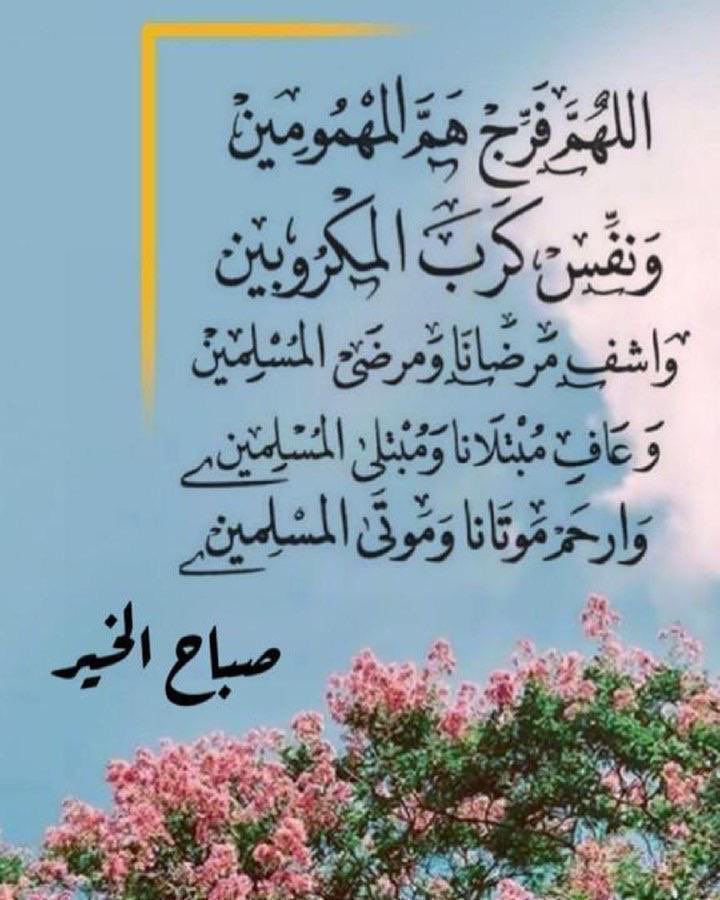 اللهُمَّ فَرِّجْ هَمَّ المَهْمُومِين
وَنَفِّسْ كَرَبَ المَكْرُوبِين
وَاشفِ مَرضَانَا وَمرضَىٰ المُسْلِمِين
وَعَافِ مُبْتَلَانا وَمُبْتلىٰ المُسْلِمِين
وَارحَمْ مَوتَانا وَمَوتَىٰ المسْلِمِين
صباح الخير